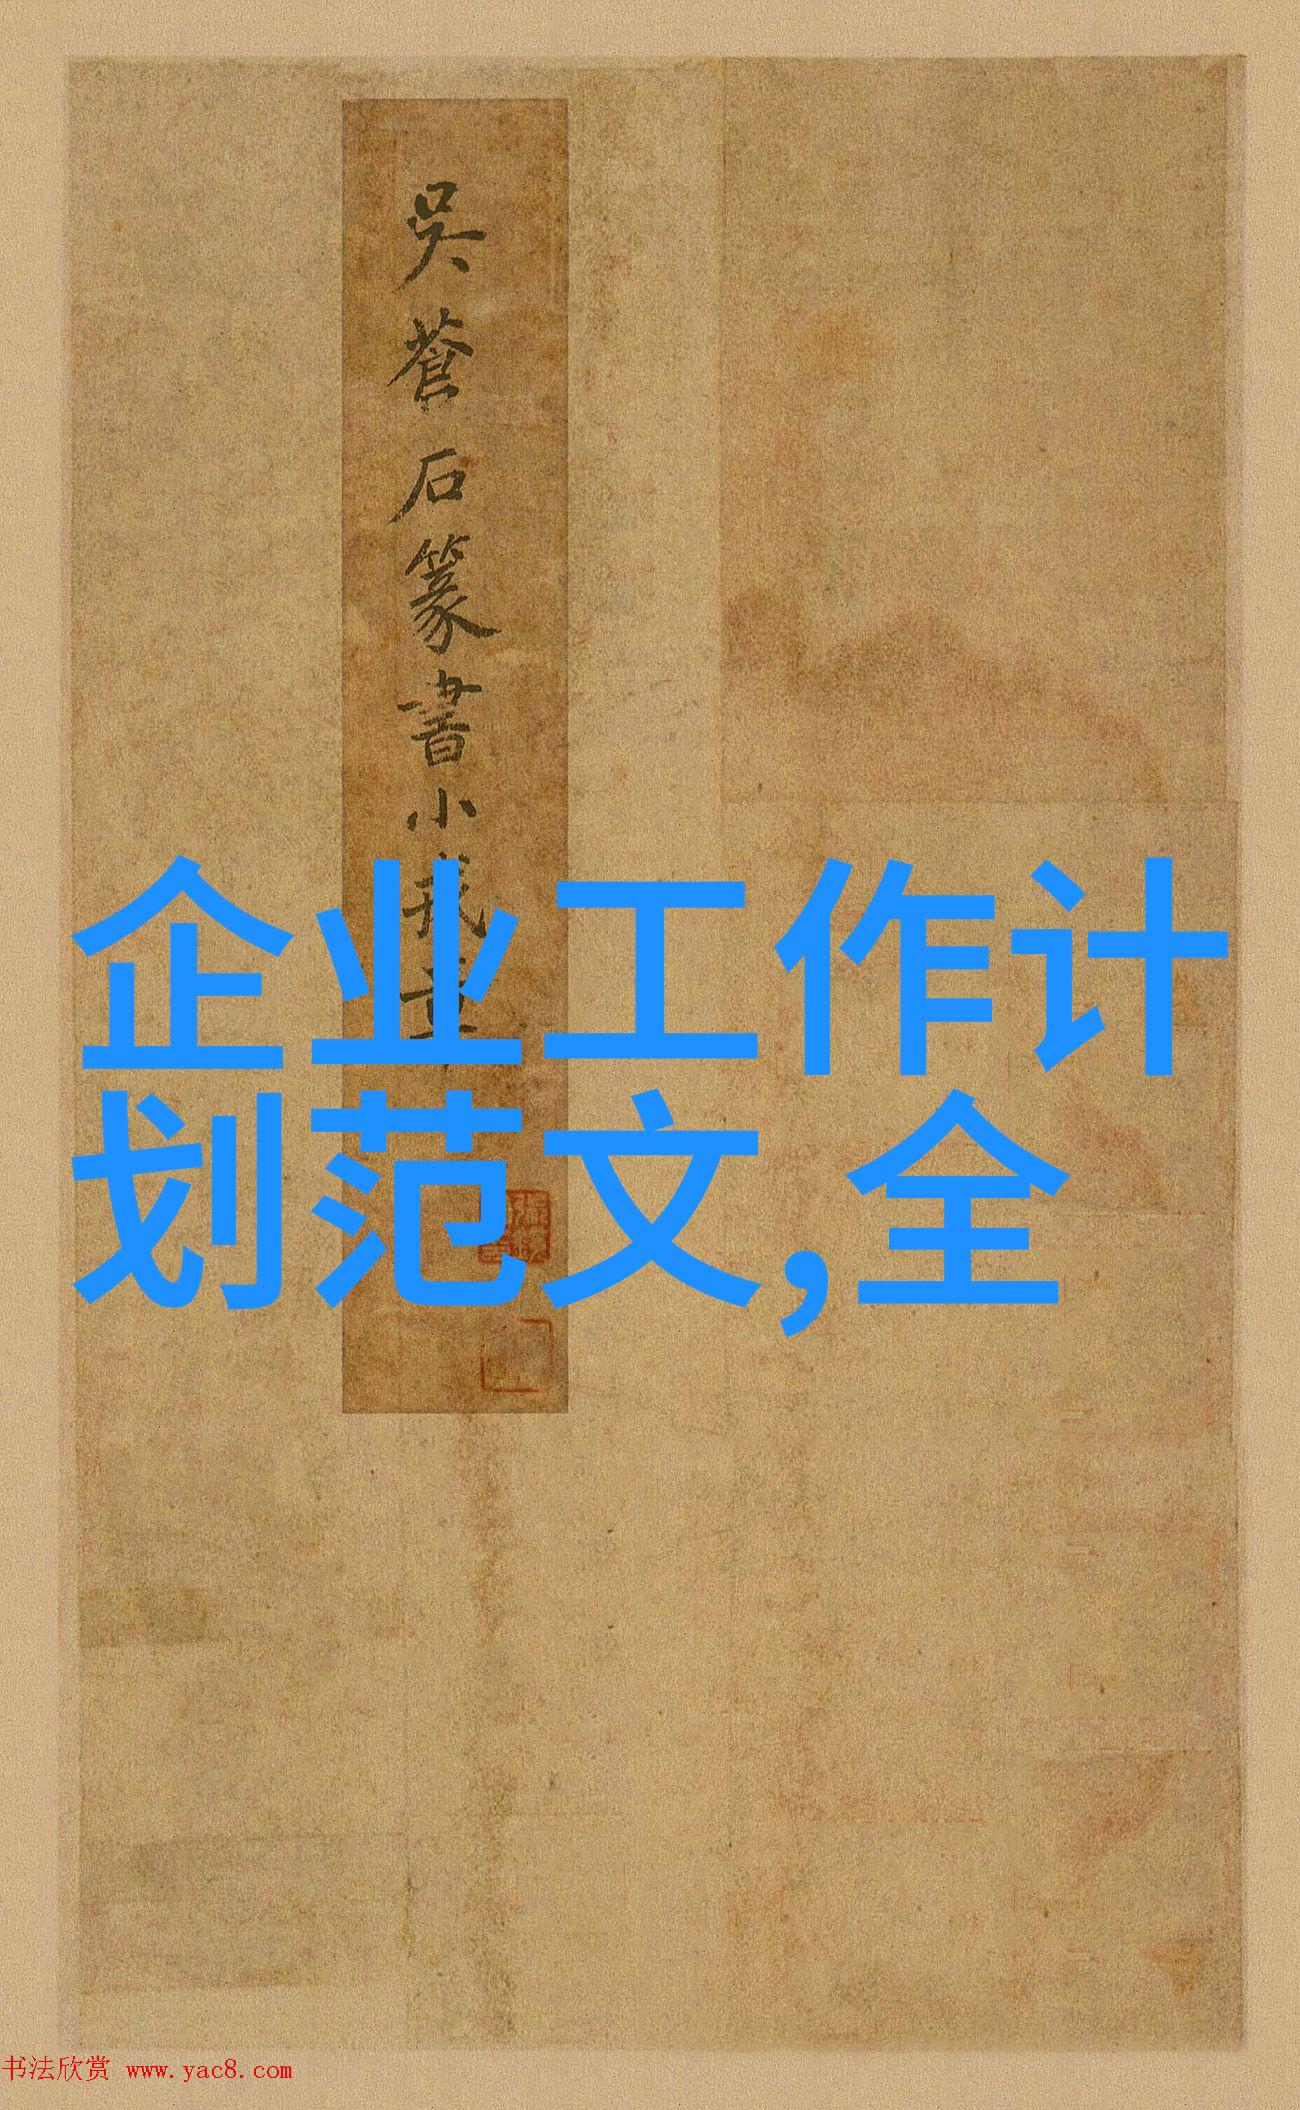 吳蒼石篆書小戎章
企业工作计
划范文,全
书法欣赏 www.yac8.com